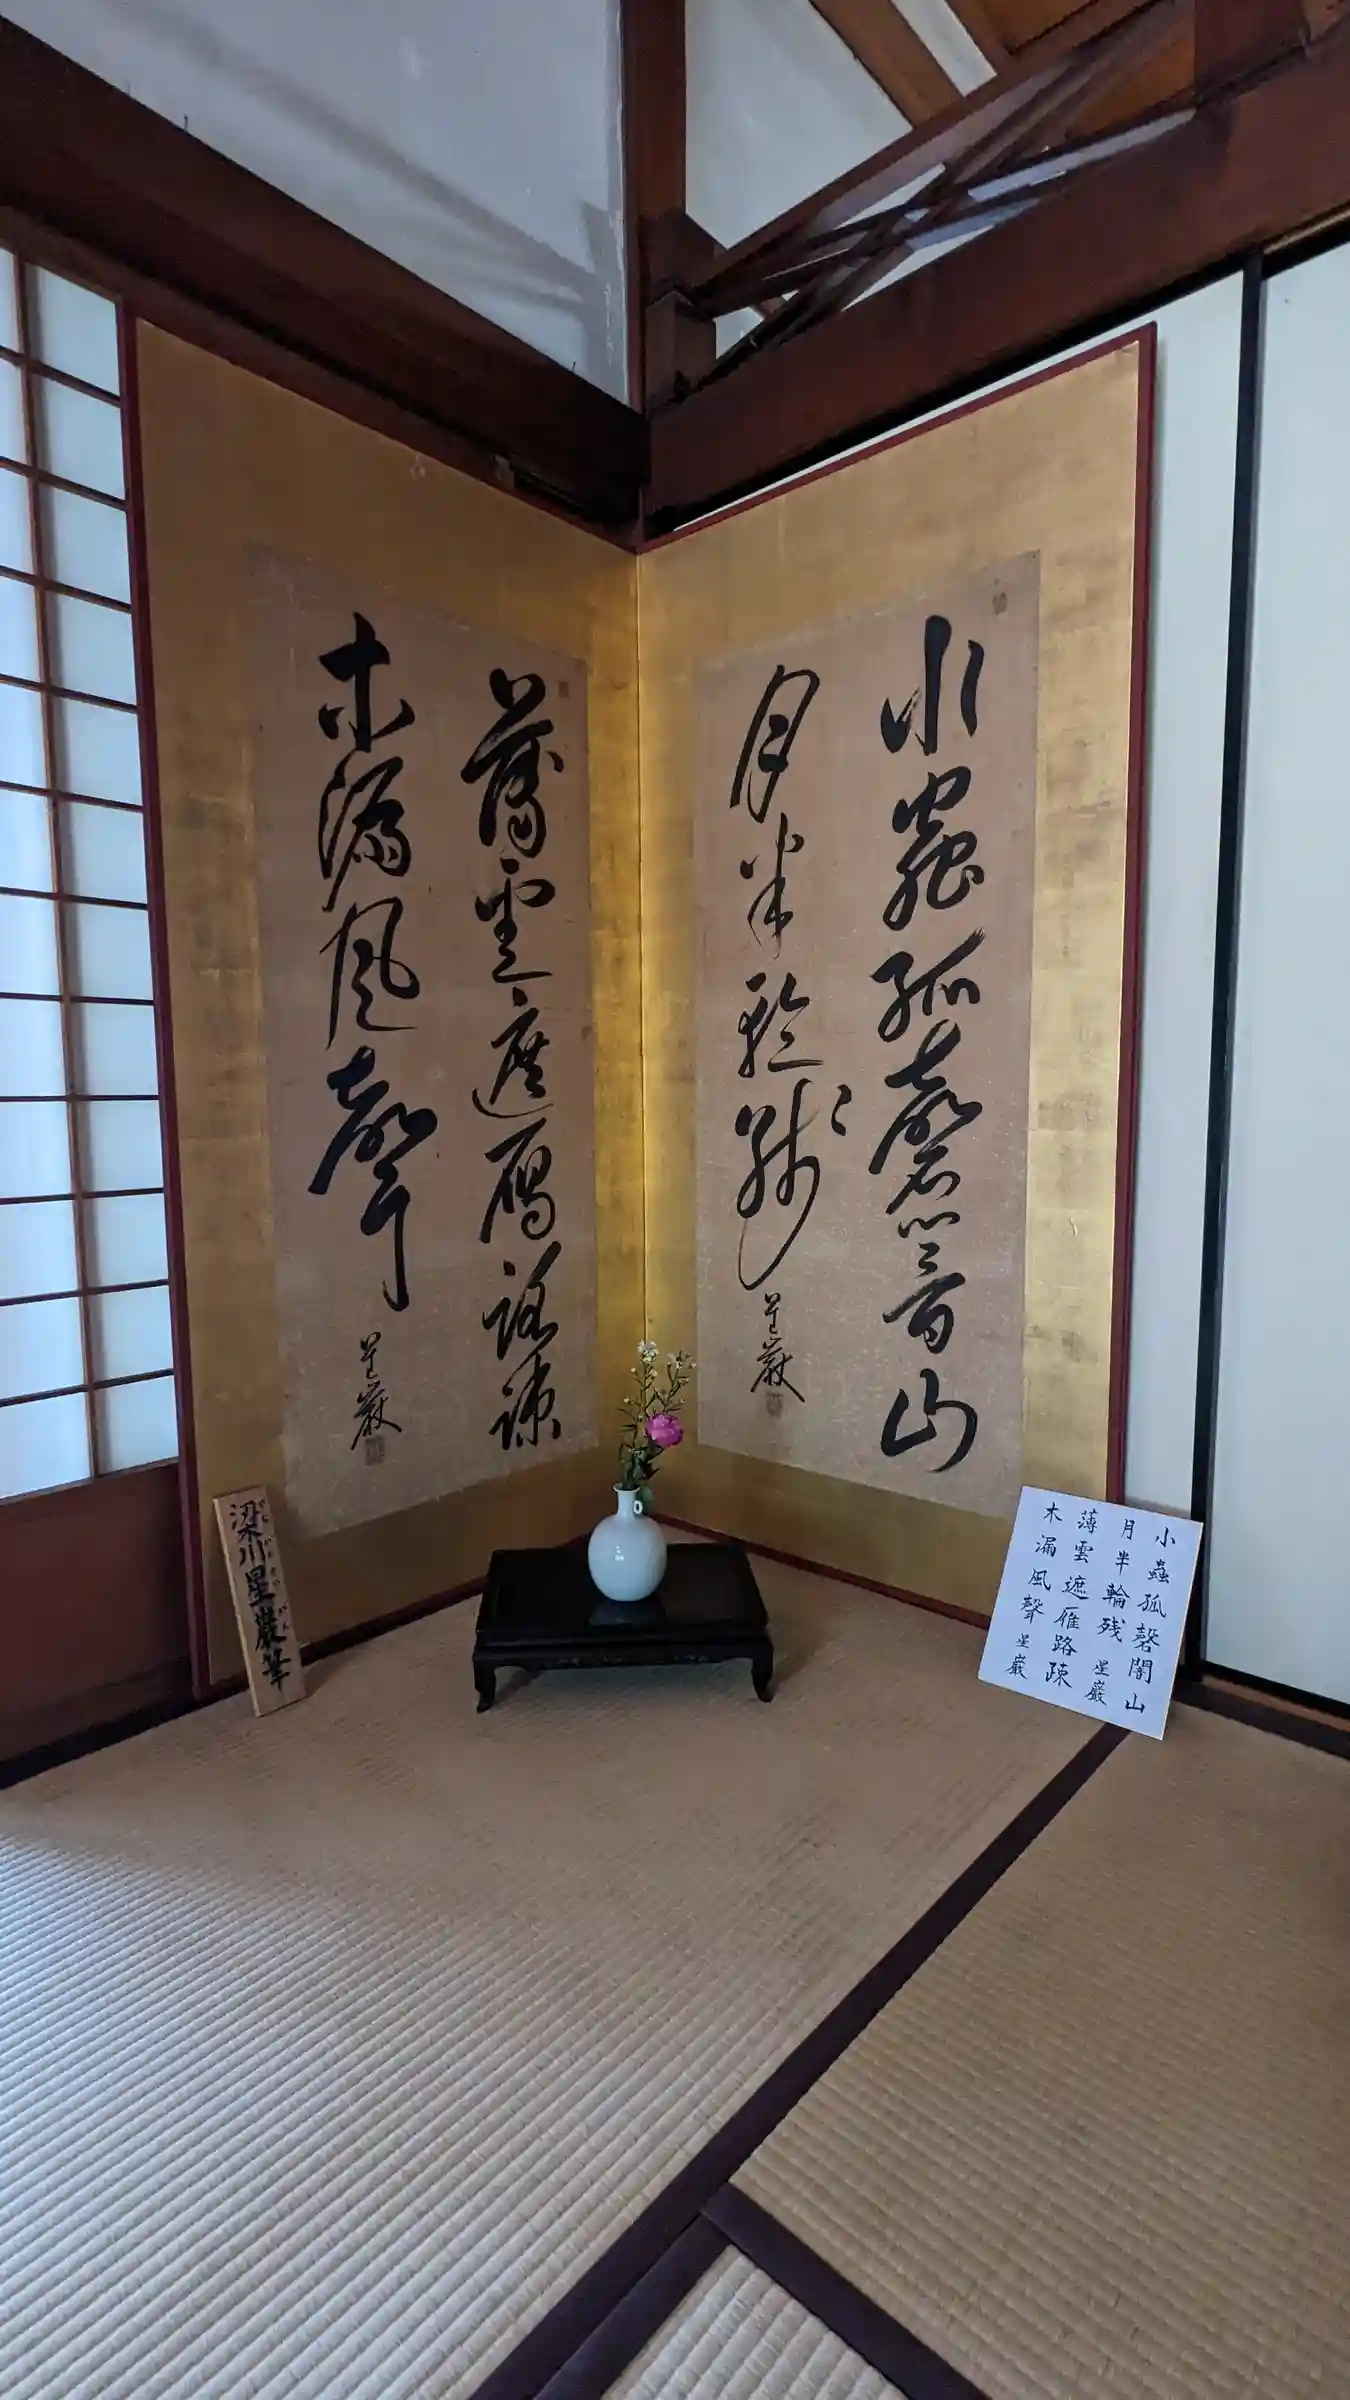 小蟲孤磬闇山
月半輪残
星巌
薄雲遮雁路疎
木漏風聲
星巌
小蟲孤磬闇山
月半輪残 星巌
薄雲遮雁路疎
木漏風聲 星巌
梁川星巖筆